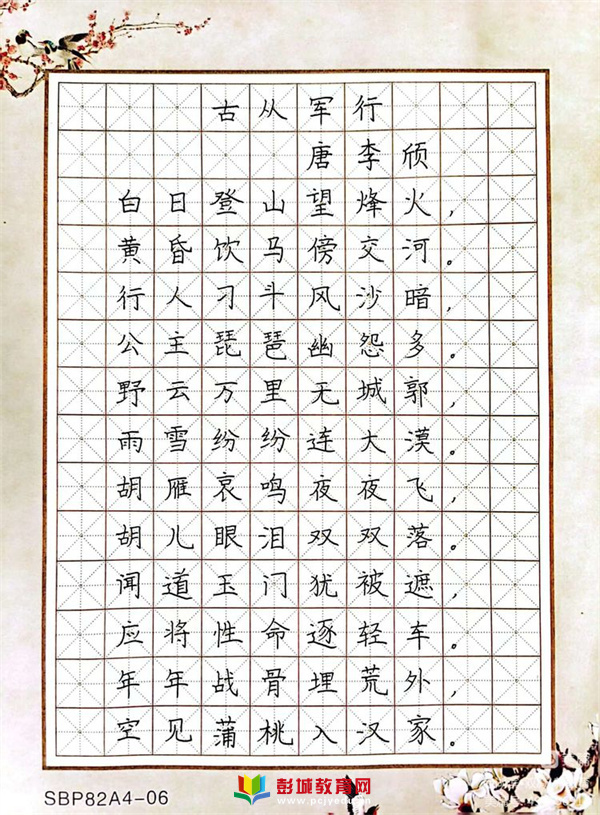 古从军行
唐李颀
白日登山望烽火，
黄昏饮马傍交河。
行人刁斗风沙暗，
公主琵琶幽怨多。
野云万里无城郭，
雨雪纷纷连大漠。
胡雁哀鸣夜夜飞，
胡儿眼泪双双落。
闻道玉门犹被遮，
应将性命逐轻车。
年年战骨埋荒外，
空见蒲桃入汉家。
SBP82A4-06
彭城教育网
www.pcjyedu.cn